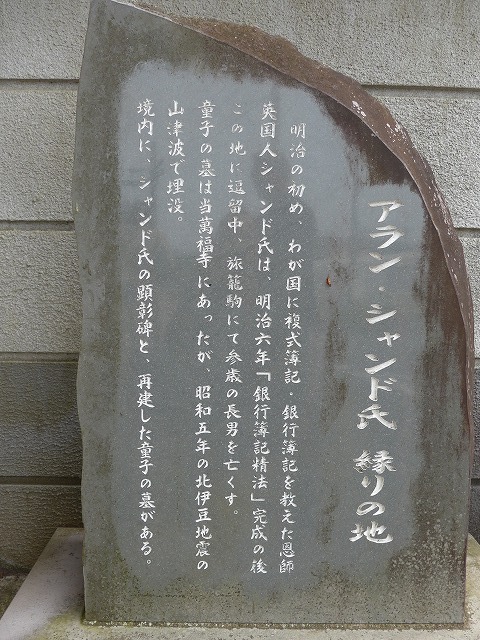 アラン・シャンド氏 縁りの地
明治の初め、わが国に複式簿記・銀行簿記を教えた恩師
英国人シャンド氏は、明治六年「銀行簿記精法」完成の後
この地に逗留中、旅籠駒にて参歳の長男を亡くす。
童子の墓は当萬福寺にあったが、昭和五年の北伊豆地震の
山津波で埋没。
境内に、シャンド氏の顕彰碑と、再建した童子の墓がある。